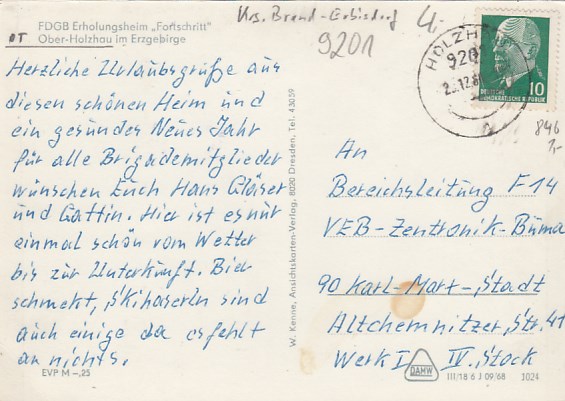 Krs. Brand-Erbisdorf
9201
OT
FDGB Erholungsheim „Fortschritt"
Ober-Holzhau im Erzgebirge
Herzliche Urlaubsgrüße aus
diesen schönen Heim und
ein gesundes Neues Jahr
für alle Brigademitglieder
wünschen Euch Hans Gläser
und Gattin. Hier ist es nur
einmal schön vom Wetter
bis zur Unterkunft. Bier
schmekt, Skihaserln sind
auch einige da es fehlt
an nichts.
EVP M –,25
W. Kenne, Ansichtskarten-Verlag, 8020 Dresden, Tel. 43059
9201
DEUTSCHE
DEMOKRATISCHE REPUBLIK
10
846
1,-
An
Bereichsleitung F 14
VEB-Zentronik-Büma
90 Karl-Marx-Stadt
Altchemnitzer, Str. 41
Werk I IV. Stock
DAMW
III/18 6 J 09/68 1024